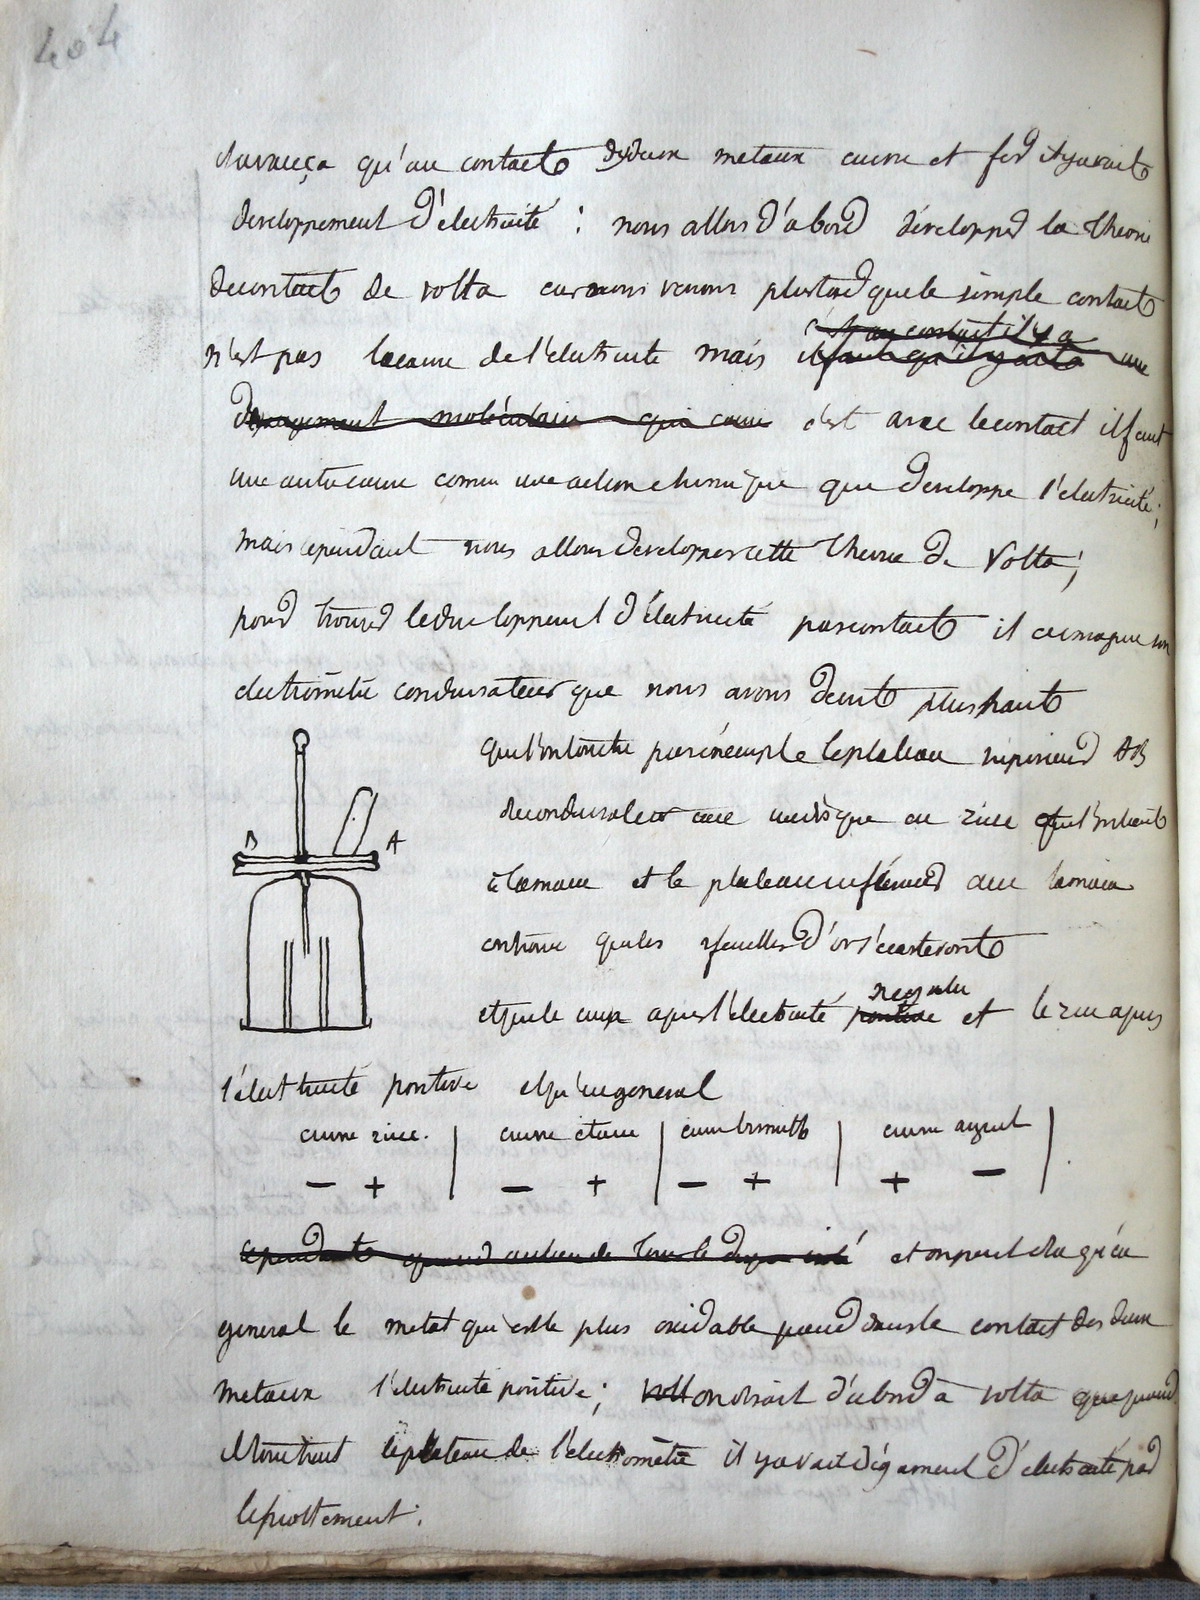 404
il avança qu'au contact de deux metaux cuivre et fer il y avait
developpement d'électricité : nous allons d'abord développer la theorie
du contact de volta car nous verrons plus tard que le simple contact
c'est au contact il y a
n'est pas la cause de l'électricité mais il faut qu'il y ait une
dérangement moléculaire qui cause c'est avec le contact il faut
une autre cause comme une action chimique que developpe l'électricité;
mais cependant nous allons developper cette theorie de Volta;
pour trouver le developpement d'électricité par contact il imagina son
électrométre condensateur que nous avons décrit plus haut
que l'on touche par exemple le plateau superieur AB
du condensateur avec un disque de zinc que l'on tient
à la main et le plateau inférieur avec la main
on trouve que les feuilles d'or s'écarteront
B A
negative
et que le cuivre a pris l'électricité positive et le zinc a pris
l'électricité positive et qu'en general
cuivre zinc. | cuivre étain | cuivre bismuth | cuivre argent |
− + − + − + + −
cependant quand au lieu de et on peut dire qu'en
general le metal qui est le plus oxidable prend dans le contact des deux
metaux l'électricité positive; Volt on disait d'abord à volta que quand
il touchait le plateau de l'électrométre il y avait dégagement d'électricité par
le frottement.